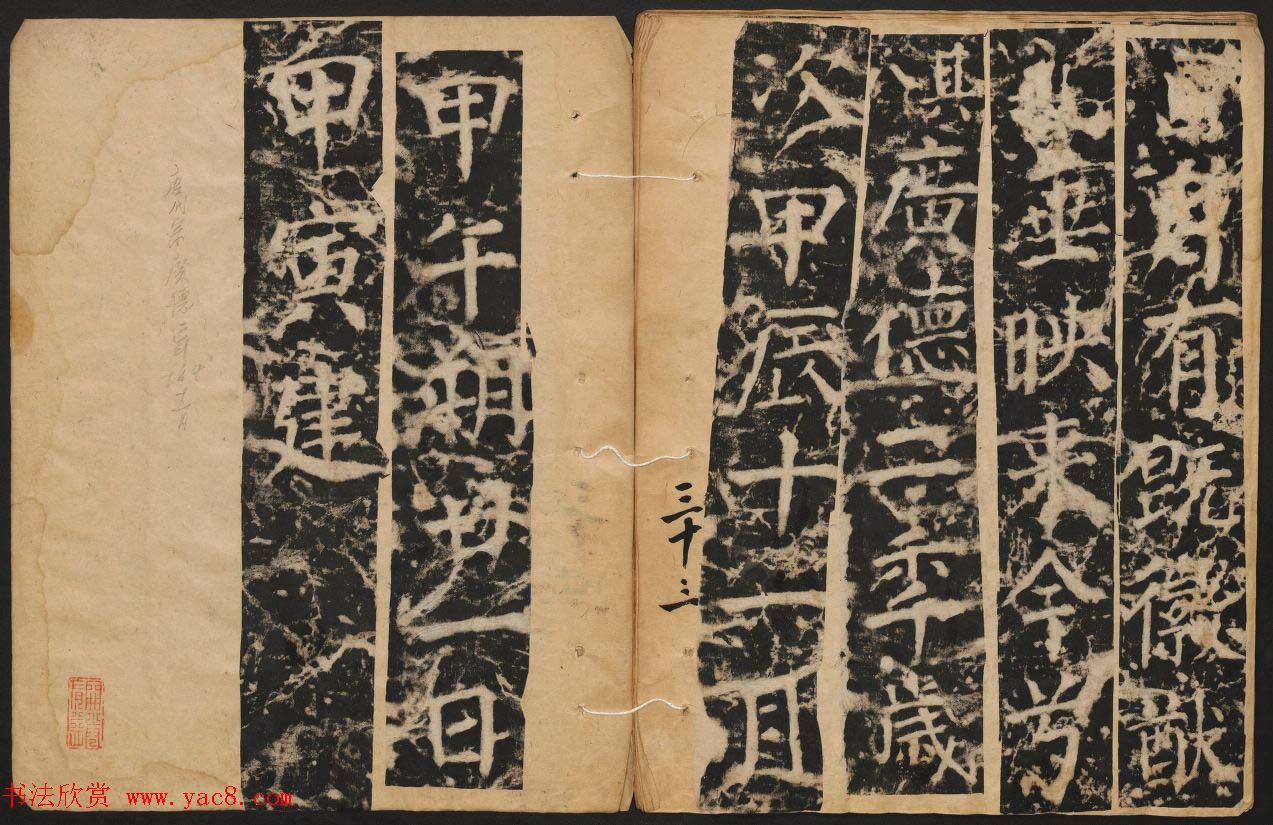 月有既徽猷
垂映來
廣德二年歲
次甲辰十一月
三十三
甲午朔廿一日
甲寅建
宗廣德二年
十一月
书法欣赏 www.yac8.com